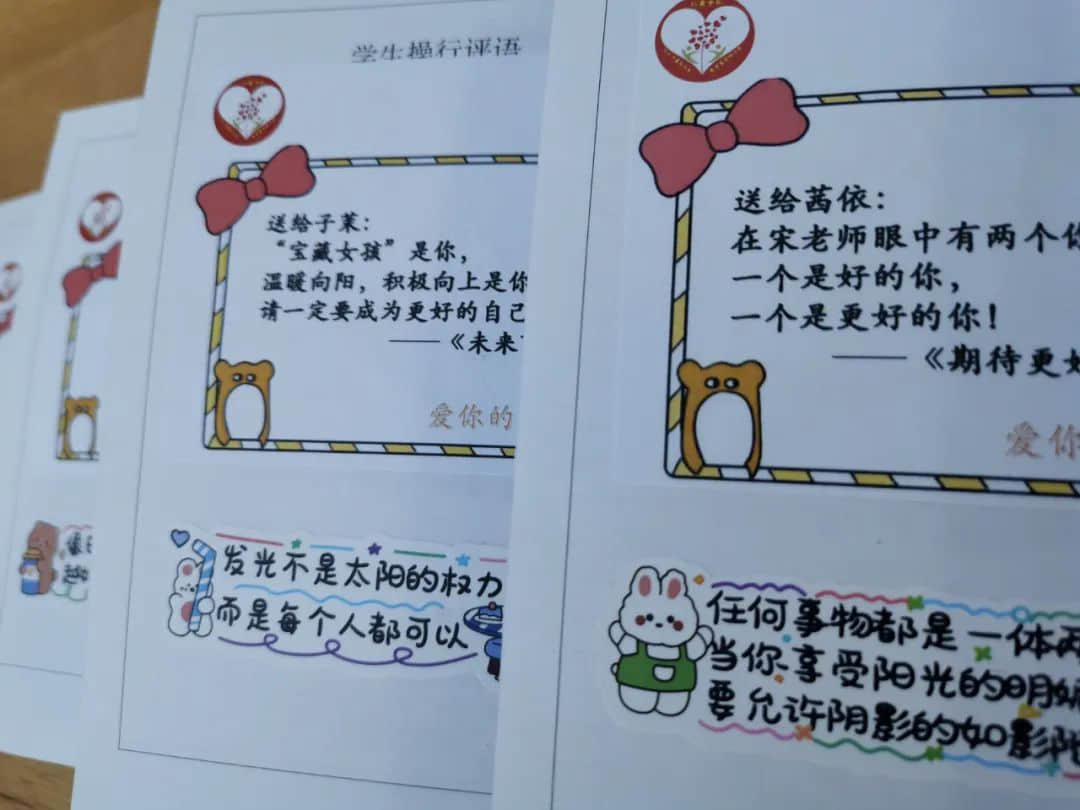 学生操行评语
送给子茉：
“宝藏女孩”是你，
温暖向阳，积极向上是你
请一定要成为更好的自己
——《未来
爱你的
发光不是太阳的权力
而是每个人都可以
送给茜依：
在宋老师眼中有两个你
一个是好的你，
一个是更好的你！
——《期待更好
爱你
任何事物都是一体两
当你享受阳光的明媚
要允许阴影的如影随